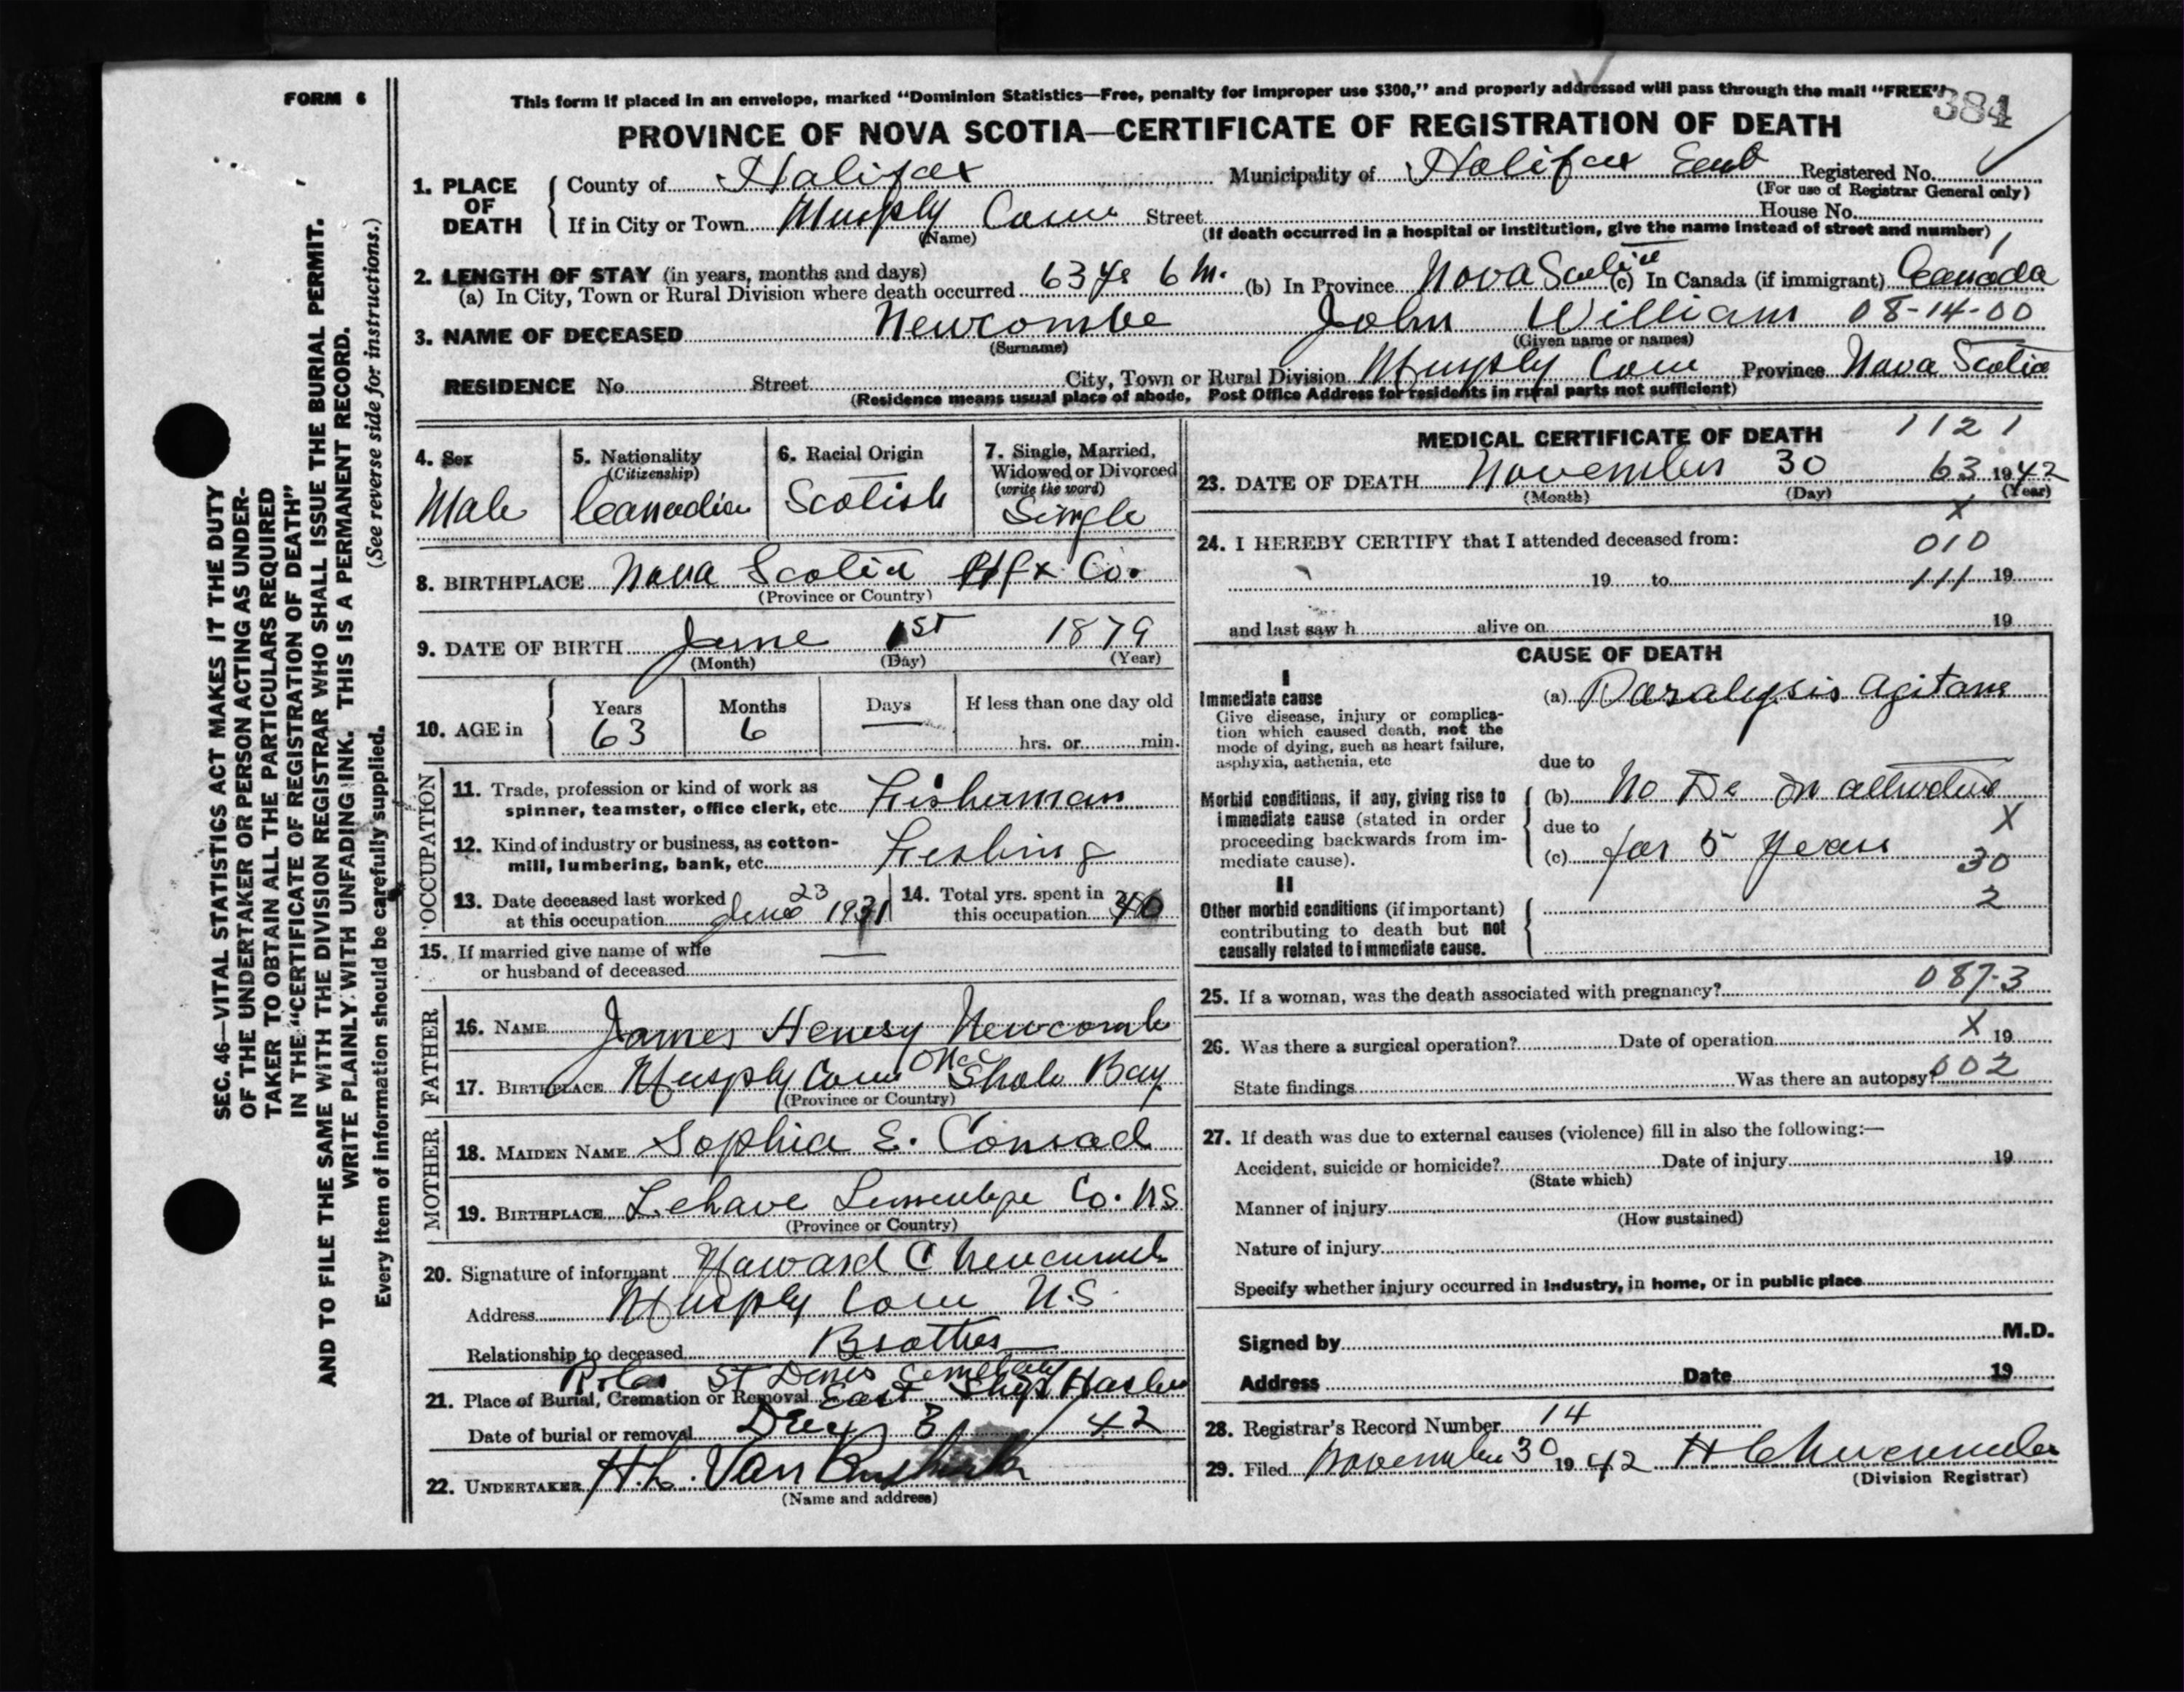 FORM 6
This form if placed in an envelope, marked "Dominion Statistics—Free, penalty for improper use $300," and properly addressed will pass through the mail "FREE"
384
PROVINCE OF NOVA SCOTIA—CERTIFICATE OF REGISTRATION OF DEATH
1. PLACE OF DEATH
County of Halifax Municipality of Halifax East Registered No.
(For use of Registrar General only)
If in City or Town Murphy Cove Street House No.
(Name) (If death occurred in a hospital or institution, give the name instead of street and number)
2. LENGTH OF STAY (in years, months and days)
(a) In City, Town or Rural Division where death occurred 63 yrs 6 M. (b) In Province Nova Scotia (c) In Canada (if immigrant) Canada
3. NAME OF DECEASED Newcombe John William 08-14-00
(Surname) (Given name or names)
RESIDENCE No. Street City, Town or Rural Division Murphy Cove Province Nova Scotia
(Residence means usual place of abode, Post Office Address for residents in rural parts not sufficient)
4. Sex
Male
5. Nationality
(Citizenship)
Canadian
6. Racial Origin
Scotish
7. Single, Married, Widowed or Divorced
(write the word)
Single
8. BIRTHPLACE Nova Scotia Hfx Co.
(Province or Country)
9. DATE OF BIRTH June 1st 1879
(Month) (Day) (Year)
10. AGE in
Years Months Days If less than one day old
63 6 — hrs. or min.
OCCUPATION
11. Trade, profession or kind of work as
spinner, teamster, office clerk, etc. Fisherman
12. Kind of industry or business, as cotton-
mill, lumbering, bank, etc. Fishing
13. Date deceased last worked
at this occupation 23 1931
14. Total yrs. spent in
this occupation 40
15. If married give name of wife
or husband of deceased —
FATHER
16. NAME James Henery Newcomb
17. BIRTHPLACE Murphy Cove Shole Bay
(Province or Country)
MOTHER
18. MAIDEN NAME Sophia E. Conrad
19. BIRTHPLACE Lehave Co. NS
(Province or Country)
20. Signature of informant Howard C Newcomb
Address Murphy Cove N.S.
Relationship to deceased Brother
St Cemetery
21. Place of Burial, Cremation or Removal East
Date of burial or removal Dec 3 / 42
22. UNDERTAKER H.L. Van
(Name and address)
MEDICAL CERTIFICATE OF DEATH 1121
23. DATE OF DEATH November 30 63 1942
(Month) (Day) (Year)
X
24. I HEREBY CERTIFY that I attended deceased from: 010
19 to 111 19
and last saw h alive on 19
CAUSE OF DEATH
I
Immediate cause
Give disease, injury or complica-
tion which caused death, not the
mode of dying, such as heart failure,
asphyxia, asthenia, etc
(a) Paralysis Agitans
due to
Morbid conditions, if any, giving rise to
immediate cause (stated in order
proceeding backwards from im-
mediate cause).
(b) No Dr in
X
due to
(c) for 5 years
30
II
Other morbid conditions (if important)
contributing to death but not
causally related to immediate cause.
2
25. If a woman, was the death associated with pregnancy? 087-3
X
26. Was there a surgical operation? Date of operation 19
State findings Was there an autopsy? 002
27. If death was due to external causes (violence) fill in also the following:—
Accident, suicide or homicide? Date of injury 19
(State which)
Manner of injury
(How sustained)
Nature of injury
Specify whether injury occurred in Industry, in home, or in public place
Signed by M.D.
Address Date 19
28. Registrar's Record Number 14
29. Filed November 30 1942 H C
(Division Registrar)
SEC. 46—VITAL STATISTICS ACT MAKES IT THE DUTY
OF THE UNDERTAKER OR PERSON ACTING AS UNDER-
TAKER TO OBTAIN ALL THE PARTICULARS REQUIRED
IN THE "CERTIFICATE OF REGISTRATION OF DEATH"
AND TO FILE THE SAME WITH THE DIVISION REGISTRAR WHO SHALL ISSUE THE BURIAL PERMIT.
WRITE PLAINLY WITH UNFADING INK. THIS IS A PERMANENT RECORD.
(See reverse side for instructions.)
Every item of information should be carefully supplied.